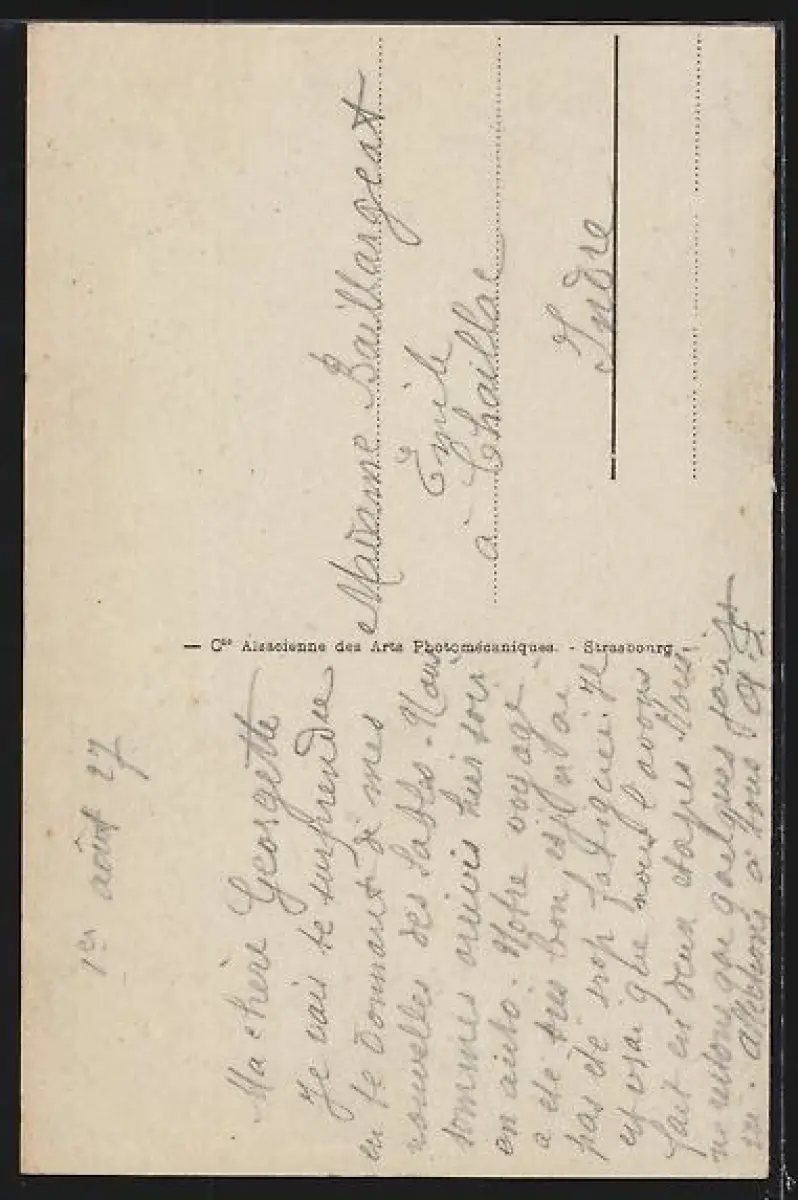 1er août 27
Ma chère Georgette
Je vais te surprendre
en te donnant de mes
nouvelles des Sables. Nous
sommes arrivés hier soir
en auto. Notre voyage
a été très bon, et je n'ai
pas été trop fatiguée. Il
est vrai que nous l'avons
fait en deux étapes. Nous
ne restons que quelques jours
Affections à tous
— Cie Alsacienne des Arts Photomécaniques. - Strasbourg
Madame Baillargeat
Emile
à Chaillac
Indre